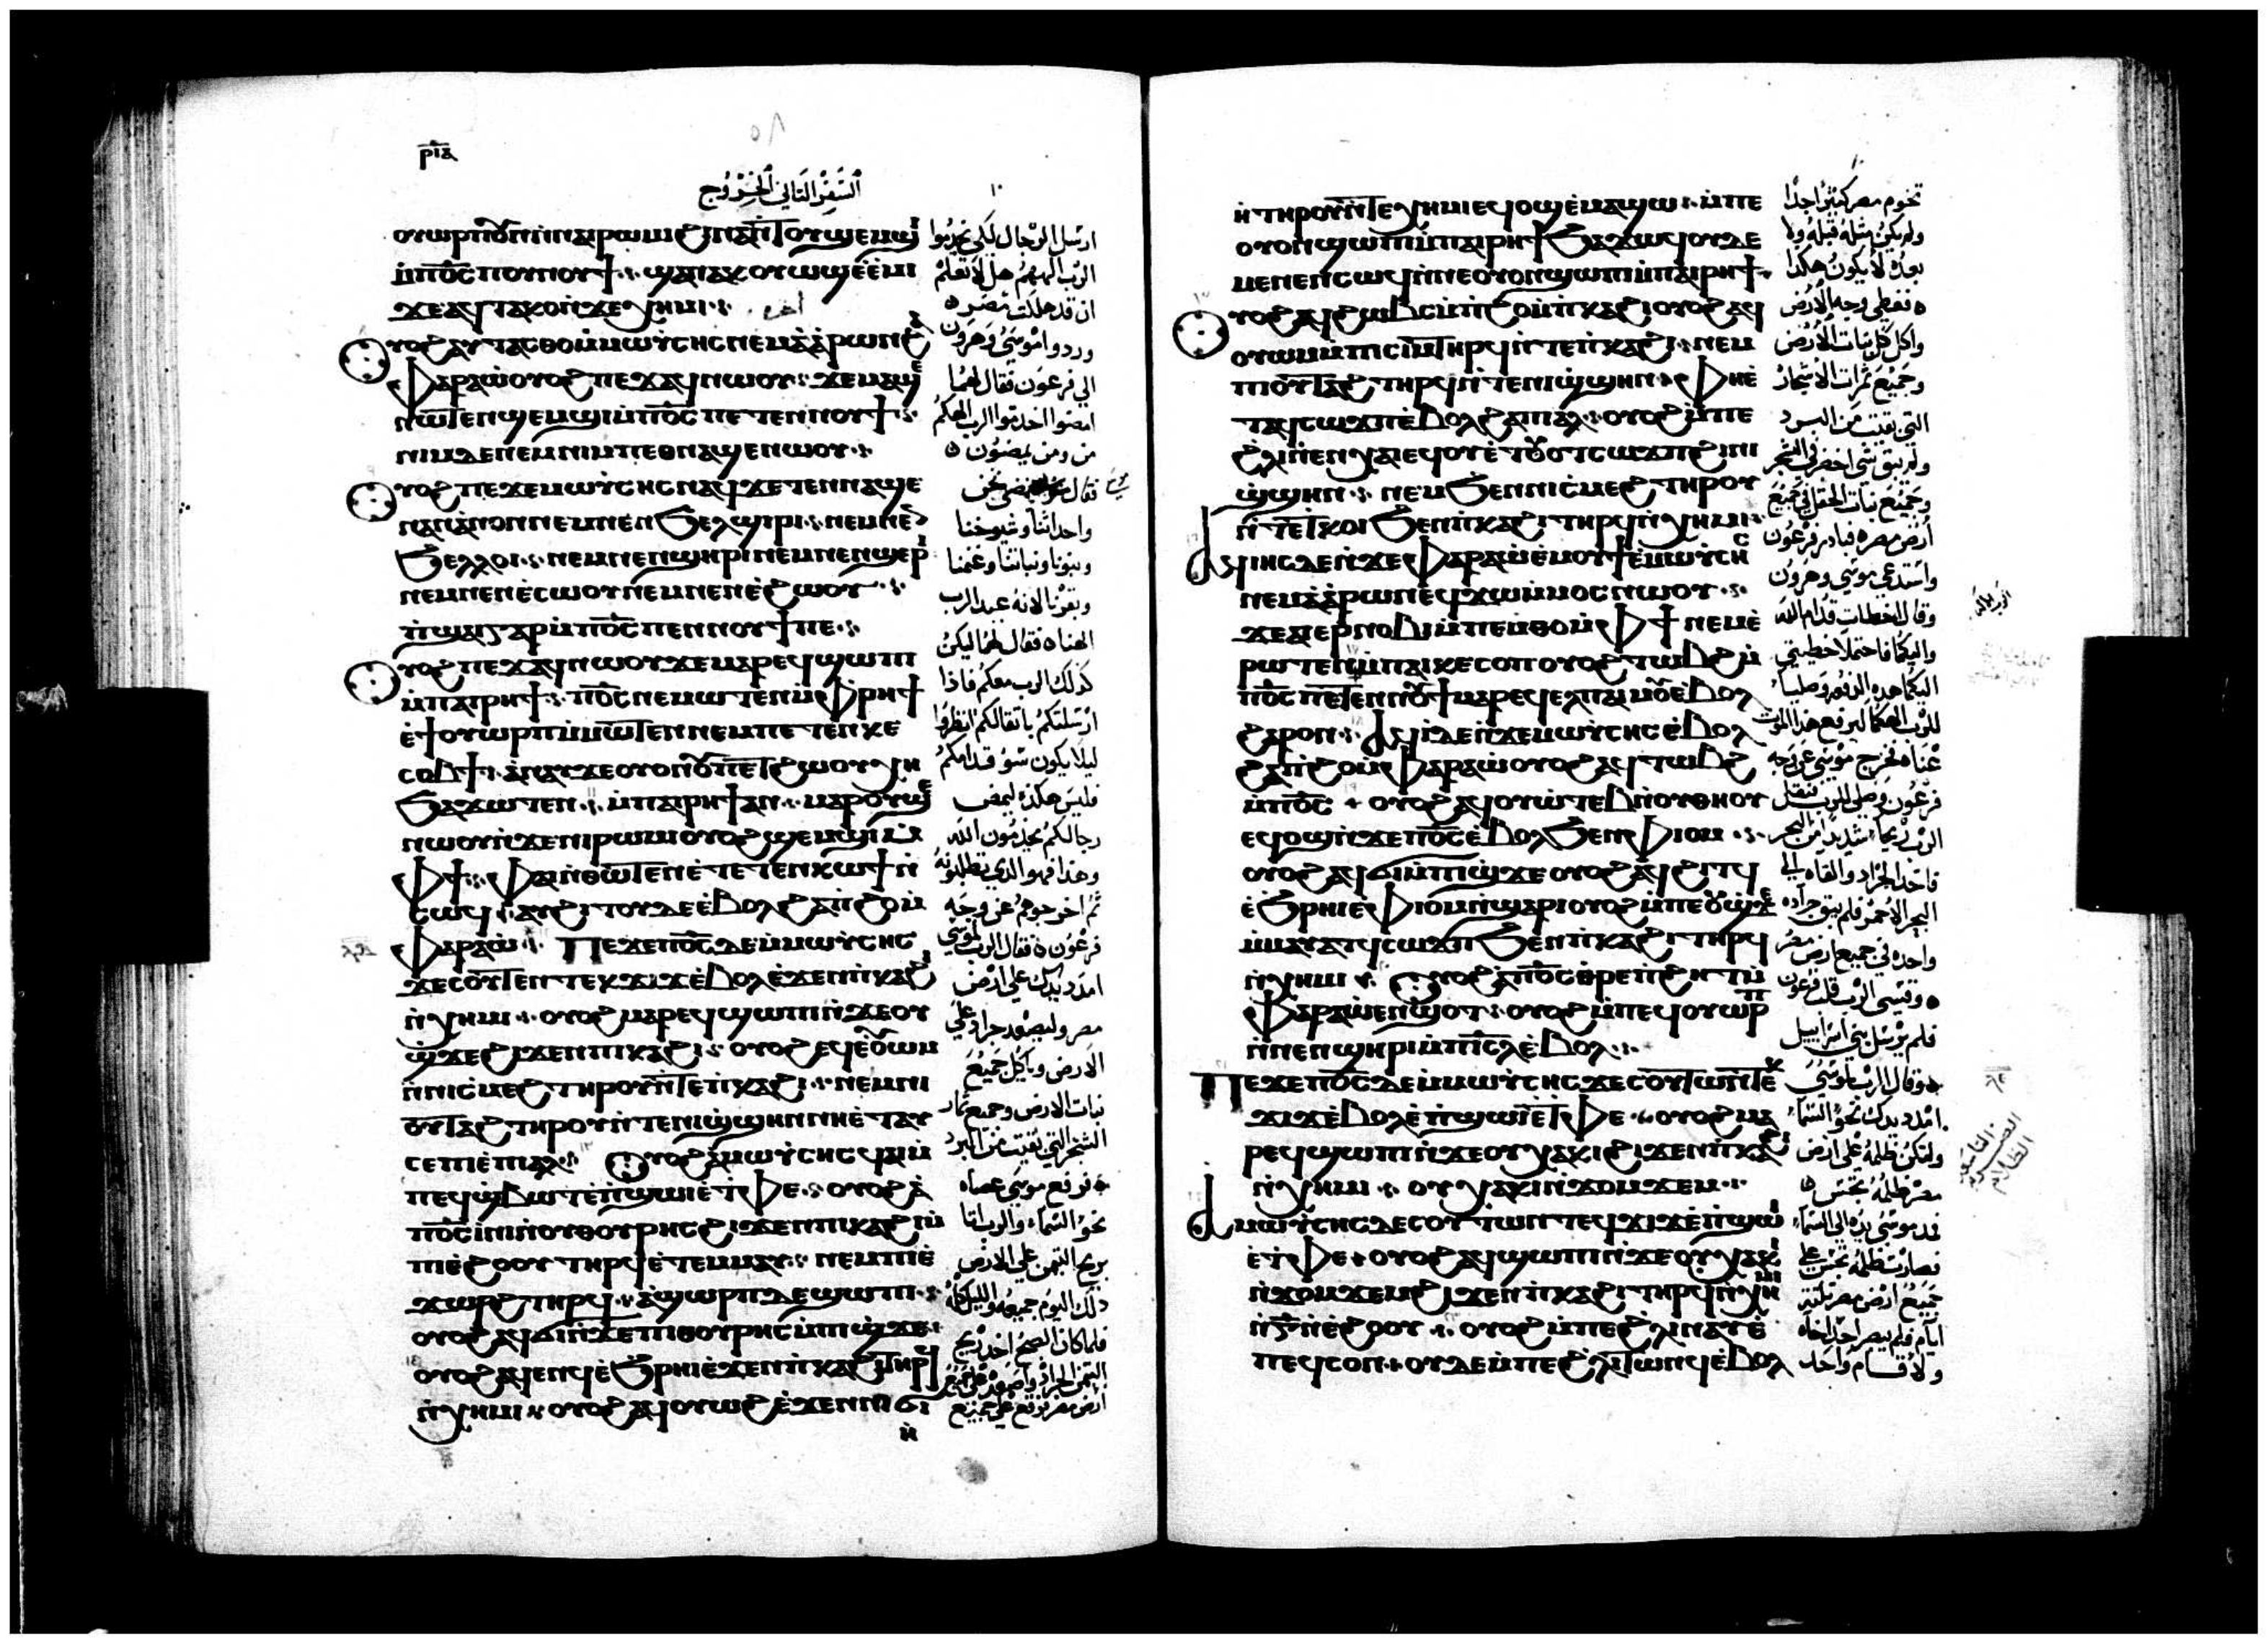 ⲣⲓⲁ
السفر الثاني الخروج
ⲟⲩⲱⲣⲡ
ϫⲉⲁϥⲧⲁⲕⲟ ⲛ̀ϫⲉⲭⲏⲙⲓ
ⲟⲩⲟϩ ⲁⲩⲧⲁⲥⲑⲟ ⲙ̀ⲙⲱⲩ̀ⲥⲏⲥ ⲛⲉⲙ ⲁ̀ⲁ̀ⲣⲱⲛ
ⲫⲁⲣⲁⲱ̀ ⲟⲩⲟϩ ⲡⲉϫⲁϥ ⲛⲱⲟⲩ ϫⲉ
ϣⲉⲙϣⲓ ⲙ̀ⲡⲟ̅ⲥ̅ ⲡⲉⲧⲉⲛⲛⲟⲩϯ
ⲛⲓⲙ ⲇⲉ ⲛⲉⲙ ⲛⲓⲙ ⲡⲉⲑⲛⲁϣⲉⲛⲱⲟⲩ
ⲟⲩⲟϩ ⲡⲉϫⲉ ⲙⲱⲩ̀ⲥⲏⲥ ⲛⲁϥ ϫⲉ ⲧⲉⲛⲛⲁϣⲉ
ⲛⲁⲛ ⲁ̀ⲛⲟⲛ ⲛⲉⲙ ⲛⲉⲛϧⲉⲗϣⲓⲣⲓ ⲛⲉⲙ ⲛⲉⲛ
ϧⲉⲗⲗⲟⲓ ⲛⲉⲙ ⲛⲉⲛϣⲏⲣⲓ ⲛⲉⲙ ⲛⲉⲛϣⲉⲣⲓ
ⲛⲉⲙ ⲛⲉⲛⲉ̀ⲥⲱⲟⲩ ⲛⲉⲙ ⲛⲉⲛⲉ̀ϩⲱⲟⲩ
ⲡ̀ϣⲁⲓ ⲅⲁⲣ ⲙ̀ⲡⲟ̅ⲥ̅ ⲡⲉⲛⲛⲟⲩϯ ⲡⲉ
ⲟⲩⲟϩ ⲡⲉϫⲁϥ ⲛⲱⲟⲩ ϫⲉ ⲙⲁⲣⲉϥϣⲱⲡⲓ
ⲙ̀ⲡⲁⲓⲣⲏϯ ⲡⲟ̅ⲥ̅ ⲛⲉⲙⲱⲧⲉⲛ ⲙ̀ⲫⲣⲏϯ
ⲉ̀ϯⲟⲩⲱⲣⲡ ⲙ̀ⲙⲱⲧⲉⲛ ⲛⲉⲙ ⲡⲉⲧⲉⲛⲕⲉ
ϧⲁϫⲱⲧⲉⲛ ⲙ̀ⲡⲁⲓⲣⲏϯ ⲁⲛ
ⲛⲱⲟⲩ ⲛ̀ϫⲉ ⲛⲓⲣⲱⲙⲓ ⲟⲩⲟϩ ϣⲉⲙϣⲓ ⲙ̀
ⲫϯ ⲫⲁⲓ
ⲥⲱϥ ⲁⲩϩⲓⲧⲟⲩ ⲇⲉ ⲉ̀ⲃⲟⲗ ϩⲁ ⲡ̀ϩⲟ ⲙ̀
ⲫⲁⲣⲁⲱ̀ ⲡⲉϫⲉ ⲡⲟ̅ⲥ̅ ⲇⲉ ⲙ̀ⲙⲱⲩ̀ⲥⲏⲥ
ϫⲉ ⲥⲟⲩⲧⲉⲛ ⲧⲉⲕϫⲓϫ ⲉ̀ⲃⲟⲗ ⲉ̀ϫⲉⲛ ⲡ̀ⲕⲁϩⲓ
ⲛ̀ⲭⲏⲙⲓ ⲟⲩⲟϩ ⲙⲁⲣⲉϥϣⲱⲡⲓ ⲛ̀ϫⲉ ⲟⲩ
ϣ̀ϫⲉ ϩⲓϫⲉⲛ ⲡⲓⲕⲁϩⲓ ⲟⲩⲟϩ ⲉϥⲉ̀ⲟⲩⲱⲙ
ⲛ̀ⲛⲓⲥⲓⲙ ⲧⲏⲣⲟⲩ ⲛ̀ⲧⲉ ⲡ̀ⲕⲁϩⲓ ⲛⲉⲙ ⲛⲓ
ⲟⲩⲧⲁϩ ⲧⲏⲣⲟⲩ ⲛ̀ⲧⲉ ⲛⲓϣ̀ϣⲏⲛ ⲛⲏ ⲉ̀ⲧⲁⲩ
ⲥⲉⲡⲓ ⲉ̀ⲡⲁⲗ ⲟⲩⲟϩ ⲁ̀ ⲙⲱⲩ̀ⲥⲏⲥ ϥⲁⲓ ⲙ̀
ⲡⲉϥϣ̀ⲃⲱⲧ ⲉ̀ⲡ̀ϣⲱⲓ ⲉ̀ⲧ̀ⲫⲉ ⲟⲩⲟϩ ⲁ̀
ⲡⲟ̅ⲥ̅ ⲓ̀ⲛⲓ ⲛ̀ⲟⲩⲑⲟⲩⲣⲏⲥ ϩⲓϫⲉⲛ ⲡⲓⲕⲁϩⲓ ⲙ̀
ⲡⲓⲉ̀ϩⲟⲟⲩ ⲧⲏⲣϥ ⲉ̀ⲧⲉⲙⲙⲁⲩ ⲛⲉⲙ ⲡⲓⲉ̀
ϫⲱⲣϩ ⲧⲏⲣϥ ⲁ̀ϣⲱⲣⲡ ⲇⲉ ϣⲱⲡⲓ
ⲟⲩⲟϩ ⲁϥϭⲓ ⲛ̀ϫⲉ ⲡⲓⲑⲟⲩⲣⲏⲥ ⲙ̀ⲡⲓϣ̀ϫⲉ
ⲟⲩⲟϩ ⲁϥⲉⲛϥ ⲉ̀ϩ̀ⲣⲏⲓ ⲉ̀ϫⲉⲛ ⲡ̀ⲕⲁϩⲓ ⲧⲏⲣϥ
ⲛ̀ⲭⲏⲙⲓ ⲟⲩⲟϩ ⲁϥⲟⲩⲱϩ ⲉ̀ϫⲉⲛ ⲛⲓϭⲓ
ⲏ̀
ارسل الرجال لكي يخدموا
الرب الههم هل لا تعلم
ان قد هلكت مصر
وردوا موسى وهرون
الى فرعون فقال لهما
امضوا اخدموا الرب الهكم
من ومن يمضون
واحداثنا وشيوخنا
وبنونا وبناتنا وغنمنا
وبقرنا لانه عيد الرب
الهنا فقال لهما ليكن
كذلك الرب معكم فاذا
ليلا يكون سو قدامكم
رجالكم يخدمون الله
وهذا فهو الذي تطلبونه
ثم اخرجوهم عن وجه
فرعون فقال الرب لموسى
امدد يدك على ارض
مصر وليصعد جراد على
الارض وياكل جميع
نبات الارض وجميع ثمار
الشجر التي بقيت من البرد
فرفع موسى عصاه
نحو السماء والرب اتا
بريح التيمن على الارض
ذلك اليوم جميعه والليل كله
فلما كان الصبح اخذ ريح
ارض مصر ووقع على جميع
ⲏ̀ ⲧⲏⲣⲟⲩ ⲛ̀ⲧⲉ ⲭⲏⲙⲓ ⲉϥⲟϣ ⲉ̀ⲙⲁϣⲱ ⲙ̀ⲡⲉ
ⲟⲩⲟⲛ ϣⲱⲡⲓ ⲙ̀ⲡⲁⲓⲣⲏϯ ϧⲁϫⲱϥ ⲟⲩⲇⲉ
ⲙⲉⲛⲉⲛⲥⲱϥ ⲛ̀ⲛⲉ ⲟⲩⲟⲛ ϣⲱⲡⲓ ⲙ̀ⲡⲁⲓⲣⲏϯ
ⲟⲩⲟϩ ⲁϥϩⲱⲃⲥ ⲙ̀ⲡ̀ϩⲟ ⲙ̀ⲡ̀ⲕⲁϩⲓ ⲟⲩⲟϩ ⲁϥ
ⲟⲩⲱⲙ ⲙ̀ⲡⲓⲥⲓⲙ ⲧⲏⲣϥ ⲛ̀ⲧⲉ ⲡ̀ⲕⲁϩⲓ ⲛⲉⲙ
ⲡⲓⲟⲩⲧⲁϩ ⲧⲏⲣϥ ⲛ̀ⲧⲉ ⲛⲓϣ̀ϣⲏⲛ ⲫⲏ ⲉ̀
ⲧⲁϥⲥⲱϫⲡ ⲉ̀ⲃⲟⲗ ϩⲁ ⲡⲁⲗ ⲟⲩⲟϩ ⲙ̀ⲡⲉ
ϣ̀ϣⲏⲛ ⲛⲉⲙ ϧⲉⲛ ⲛⲓⲥⲓⲙ ⲧⲏⲣⲟⲩ
ⲛ̀ⲧⲉ ⲧ̀ⲕⲟⲓ ϧⲉⲛ ⲡ̀ⲕⲁϩⲓ ⲧⲏⲣϥ ⲛ̀ⲭⲏⲙⲓ
ⲁϥⲓⲏⲥ ⲇⲉ ⲛ̀ϫⲉ ⲫⲁⲣⲁⲱ̀ ⲉ̀ⲙⲟⲩϯ ⲉ̀ⲙⲱⲩ̀ⲥⲏⲥ
ⲛⲉⲙ ⲁ̀ⲁ̀ⲣⲱⲛ ⲉϥϫⲱ ⲙ̀ⲙⲟⲥ ⲛⲱⲟⲩ
ϫⲉ ⲁⲓⲉⲣⲛⲟⲃⲓ ⲙ̀ⲡⲉⲙ̀ⲑⲟ ⲙ̀ⲫϯ ⲛⲉⲙ ⲉ̀
ⲣⲱⲧⲉⲛ ⲙ̀ⲡⲁⲓⲕⲉⲥⲟⲡ ⲟⲩⲟϩ ⲧⲱⲃϩ ⲙ̀
ⲡⲟ̅ⲥ̅ ⲡⲉⲧⲉⲛⲛⲟⲩϯ ⲙⲁⲣⲉϥⲉⲗ ⲡⲁⲓⲙⲟⲩ ⲉ̀ⲃⲟⲗ
ϩⲁⲣⲟⲓ ⲁϥⲓ̀ ⲇⲉ ⲛ̀ϫⲉ ⲙⲱⲩ̀ⲥⲏⲥ ⲉ̀ⲃⲟⲗ
ϩⲁ ⲡ̀ϩⲟ ⲙ̀ⲫⲁⲣⲁⲱ̀ ⲟⲩⲟϩ ⲁϥⲧⲱⲃϩ
ⲙ̀ⲡⲟ̅ⲥ̅ ⲟⲩⲟϩ ⲁϥⲟⲩⲱⲧⲉⲃ ⲛ̀ⲟⲩⲑⲏⲟⲩ
ⲉϥⲟϣ ⲛ̀ϫⲉ ⲡⲟ̅ⲥ̅ ⲉ̀ⲃⲟⲗ ϧⲉⲛ ⲫⲓⲟⲙ
ⲟⲩⲟϩ ⲁϥϭⲓ ⲙ̀ⲡⲓϣ̀ϫⲉ ⲟⲩⲟϩ ⲁϥϩⲓⲧϥ
ⲉ̀ϧ̀ⲣⲏⲓ ⲉ̀ⲫⲓⲟⲙ ⲛ̀ϣⲁⲣⲓ ⲟⲩⲟϩ ⲙ̀ⲡⲉ ⲟⲩϣ̀ϫⲉ
ⲙ̀ⲙⲁⲩⲁⲧϥ ⲥⲱϫⲡ ϧⲉⲛ ⲡ̀ⲕⲁϩⲓ ⲧⲏⲣϥ
ⲛ̀ⲭⲏⲙⲓ ⲟⲩⲟϩ ⲁ̀ ⲡⲟ̅ⲥ̅ ⲑ̀ⲣⲉ ⲡ̀ϩⲏⲧ ⲙ̀
ⲫⲁⲣⲁⲱ̀ ⲉⲛϣⲟⲧ ⲟⲩⲟϩ ⲙ̀ⲡⲉϥⲟⲩⲱⲣⲡ
ⲛ̀ⲛⲉⲛϣⲏⲣⲓ ⲙ̀ⲡⲓⲥ̅ⲗ̅ ⲉ̀ⲃⲟⲗ
ⲡⲉϫⲉ ⲡⲟ̅ⲥ̅ ⲇⲉ ⲙ̀ⲙⲱⲩ̀ⲥⲏⲥ ϫⲉ ⲥⲟⲩⲧⲱⲛ ⲧⲉⲕ
ϫⲓϫ ⲉ̀ⲃⲟⲗ ⲉ̀ⲡ̀ϣⲱⲓ ⲉ̀ⲧ̀ⲫⲉ ⲟⲩⲟϩ ⲙⲁ
ⲣⲉϥϣⲱⲡⲓ ⲛ̀ϫⲉ ⲟⲩⲭⲁⲕⲓ ϩⲓϫⲉⲛ ⲡ̀ⲕⲁϩⲓ
ⲛ̀ⲭⲏⲙⲓ ⲟⲩⲭⲁⲕⲓ ⲛ̀ϫⲟⲙϫⲉⲙ
ⲁ ⲙⲱⲩ̀ⲥⲏⲥ ⲇⲉ ⲥⲟⲩⲧⲱⲛ ⲧⲉϥϫⲓϫ ⲉ̀ⲡ̀ϣⲱⲓ
ⲉ̀ⲧ̀ⲫⲉ ⲟⲩⲟϩ ⲁϥϣⲱⲡⲓ ⲛ̀ϫⲉ ⲟⲩⲭⲁⲕⲓ
ⲛ̀ϫⲟⲙϫⲉⲙ ϩⲓϫⲉⲛ ⲡ̀ⲕⲁϩⲓ ⲧⲏⲣϥ ⲛ̀ⲭⲏⲙⲓ
ⲛ̀ⲅ̅ ⲛ̀ⲉ̀ϩⲟⲟⲩ ⲟⲩⲟϩ ⲙ̀ⲡⲉ ϩ̀ⲗⲓ ⲛⲁⲩ ⲉ̀
ⲡⲉϥⲥⲟⲛ ⲟⲩⲇⲉ ⲙ̀ⲡⲉ ϩ̀ⲗⲓ ⲧⲱⲛϥ ⲉ̀ⲃⲟⲗ
تخوم مصر كثيرا جدا
ولم يكن مثله قبله ولا
بعده لا يكون هكذا
فغطى وجه الارض
واكل كل نبات الارض
وجميع ثمرات الاشجار
التي بقيت من البرد
ولم يبق شي اخضر في الشجر
وجميع نبات الحقل في جميع
ارض مصر فبادر فرعون
واستدعى موسى وهرون
وقال اخطات قدام الله
واليكما فاحتملا خطيتي
فرعون وصلى للرب فنقل
الرب ريحا شديدا من البحر
فاخذ الجراد والقاه الى
البحر الاحمر فلم يبق جراده
واحده في جميع ارض مصر
وقسى الرب قلب فرعون
فلم يرسل بني اسراييل
وقال الرب لموسى
امدد يدك نحو السماء
ولتكن ظلمة على ارض
مصر ظلمة تجس
فمد موسى يده الى السماء
فصارت ظلمة تجس على
جميع ارض مصر ثلثة
ايام فلم يبصر احد اخاه
ولا قام واحد